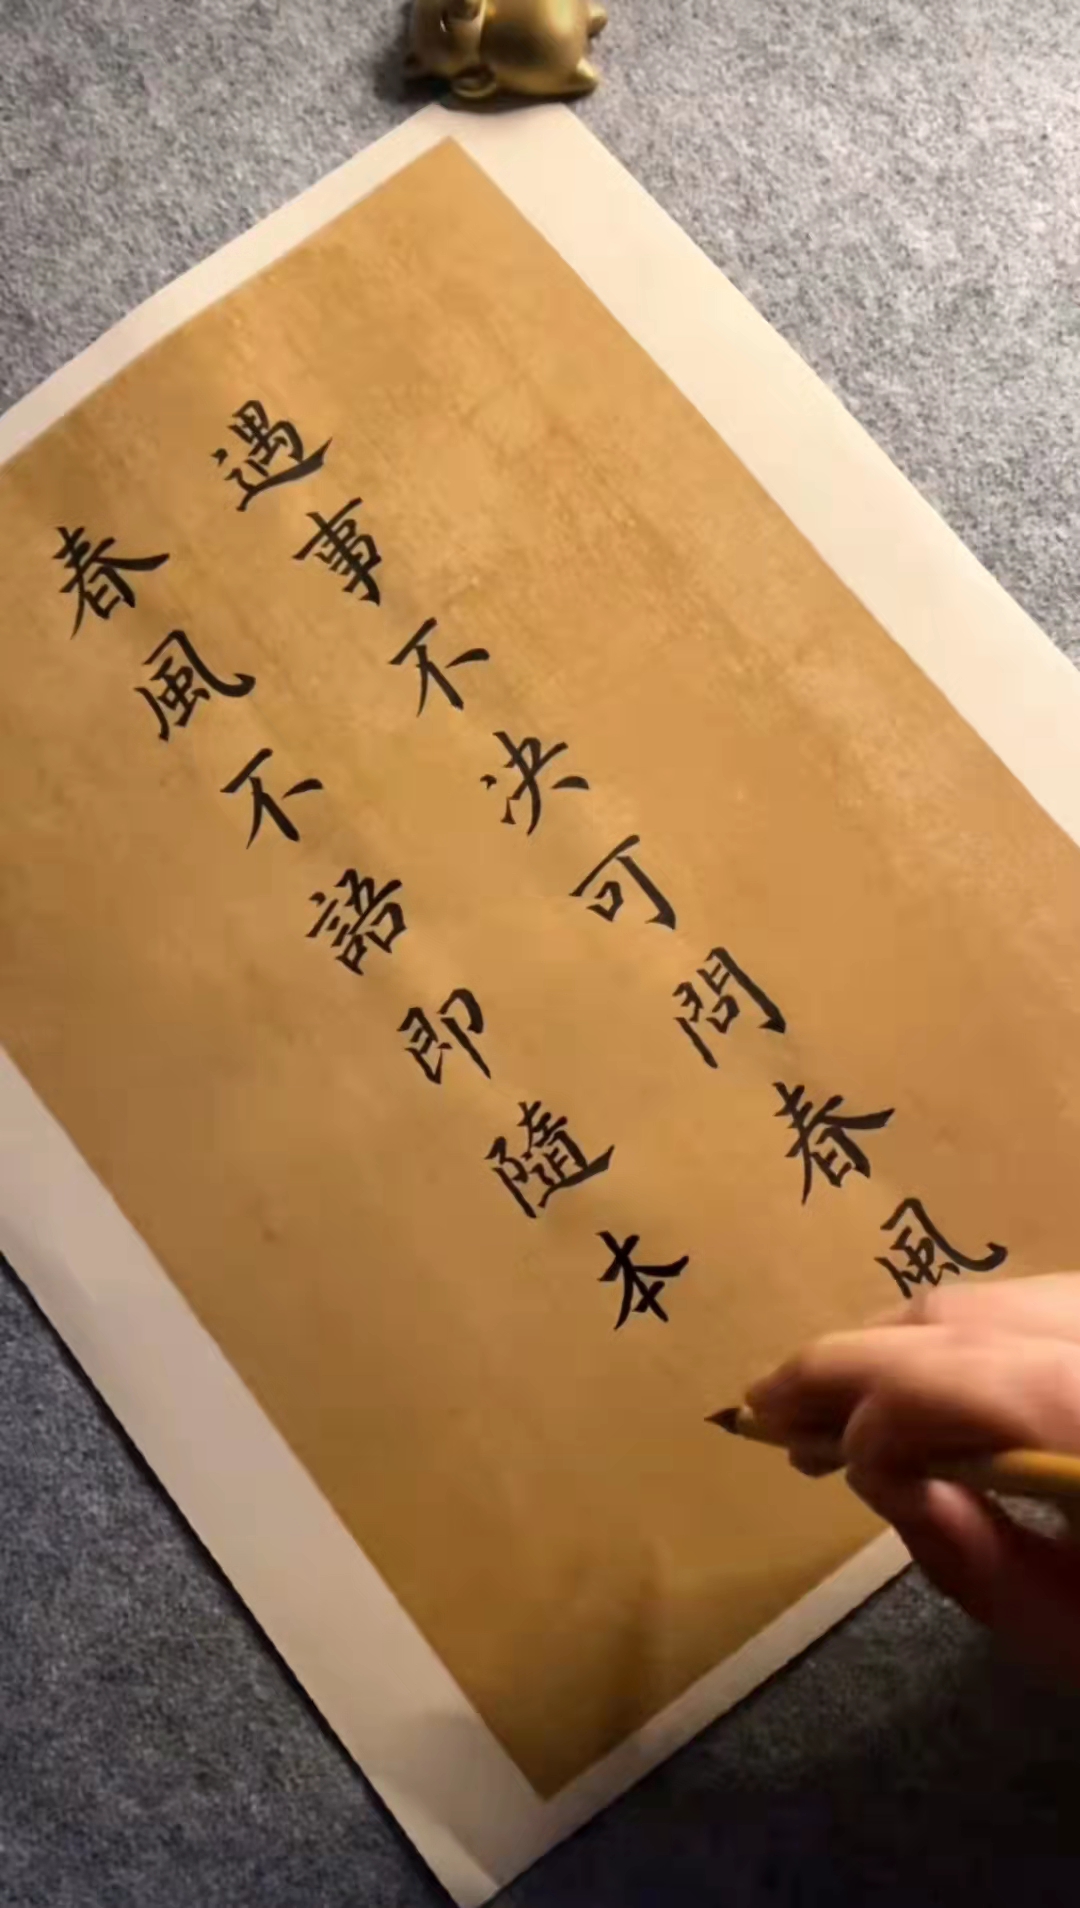 遇事不决可問春風
春風不語即隨本